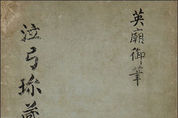 英廟御筆
泣弓珎藏